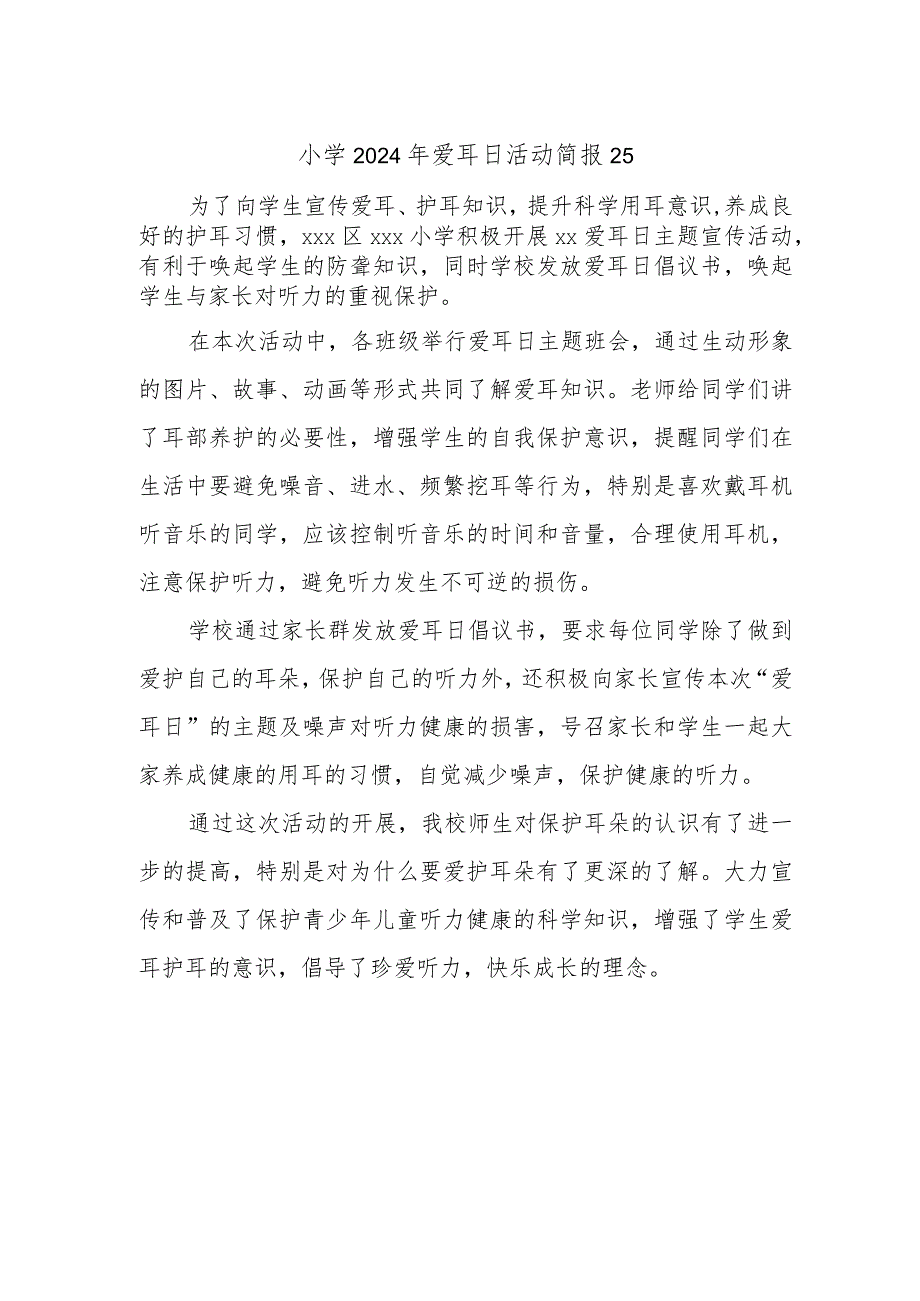 小学 2024 年爱耳日活动简报 25
为了向学生宣传爱耳、护耳知识，提升科学用耳意识,养成良
好的护耳习惯，xxx 区 xxx 小学积极开展 xx 爱耳日主题宣传活动，
有利于唤起学生的防聋知识，同时学校发放爱耳日倡议书，唤起
学生与家长对听力的重视保护。
在本次活动中，各班级举行爱耳日主题班会，通过生动形象
的图片、故事、动画等形式共同了解爱耳知识。老师给同学们讲
了耳部养护的必要性，增强学生的自我保护意识，提醒同学们在
生活中要避免噪音、进水、频繁挖耳等行为，特别是喜欢戴耳机
听音乐的同学，应该控制听音乐的时间和音量，合理使用耳机，
注意保护听力，避免听力发生不可逆的损伤。
学校通过家长群发放爱耳日倡议书，要求每位同学除了做到
爱护自己的耳朵，保护自己的听力外，还积极向家长宣传本次“爱
耳日”的主题及噪声对听力健康的损害，号召家长和学生一起大
家养成健康的用耳的习惯，自觉减少噪声，保护健康的听力。
通过这次活动的开展，我校师生对保护耳朵的认识有了进一
步的提高，特别是对为什么要爱护耳朵有了更深的了解。大力宣
传和普及了保护青少年儿童听力健康的科学知识，增强了学生爱
耳护耳的意识，倡导了珍爱听力，快乐成长的理念。